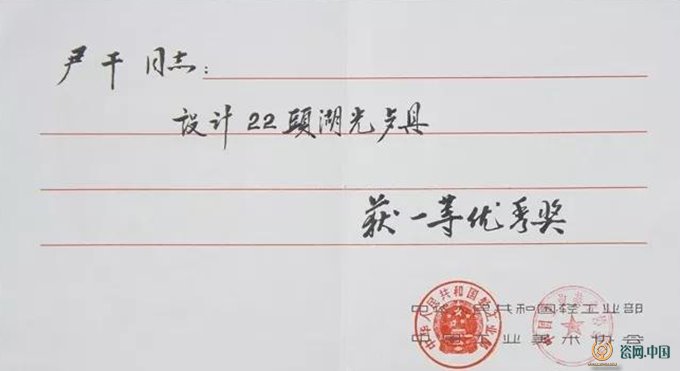 尹干同志：
设计22頭湖光卢具
获一等优秀奖
中华人民共和国轻工业部
中国工业美术协会
中华人民共和国轻工业部
瓷网.中国